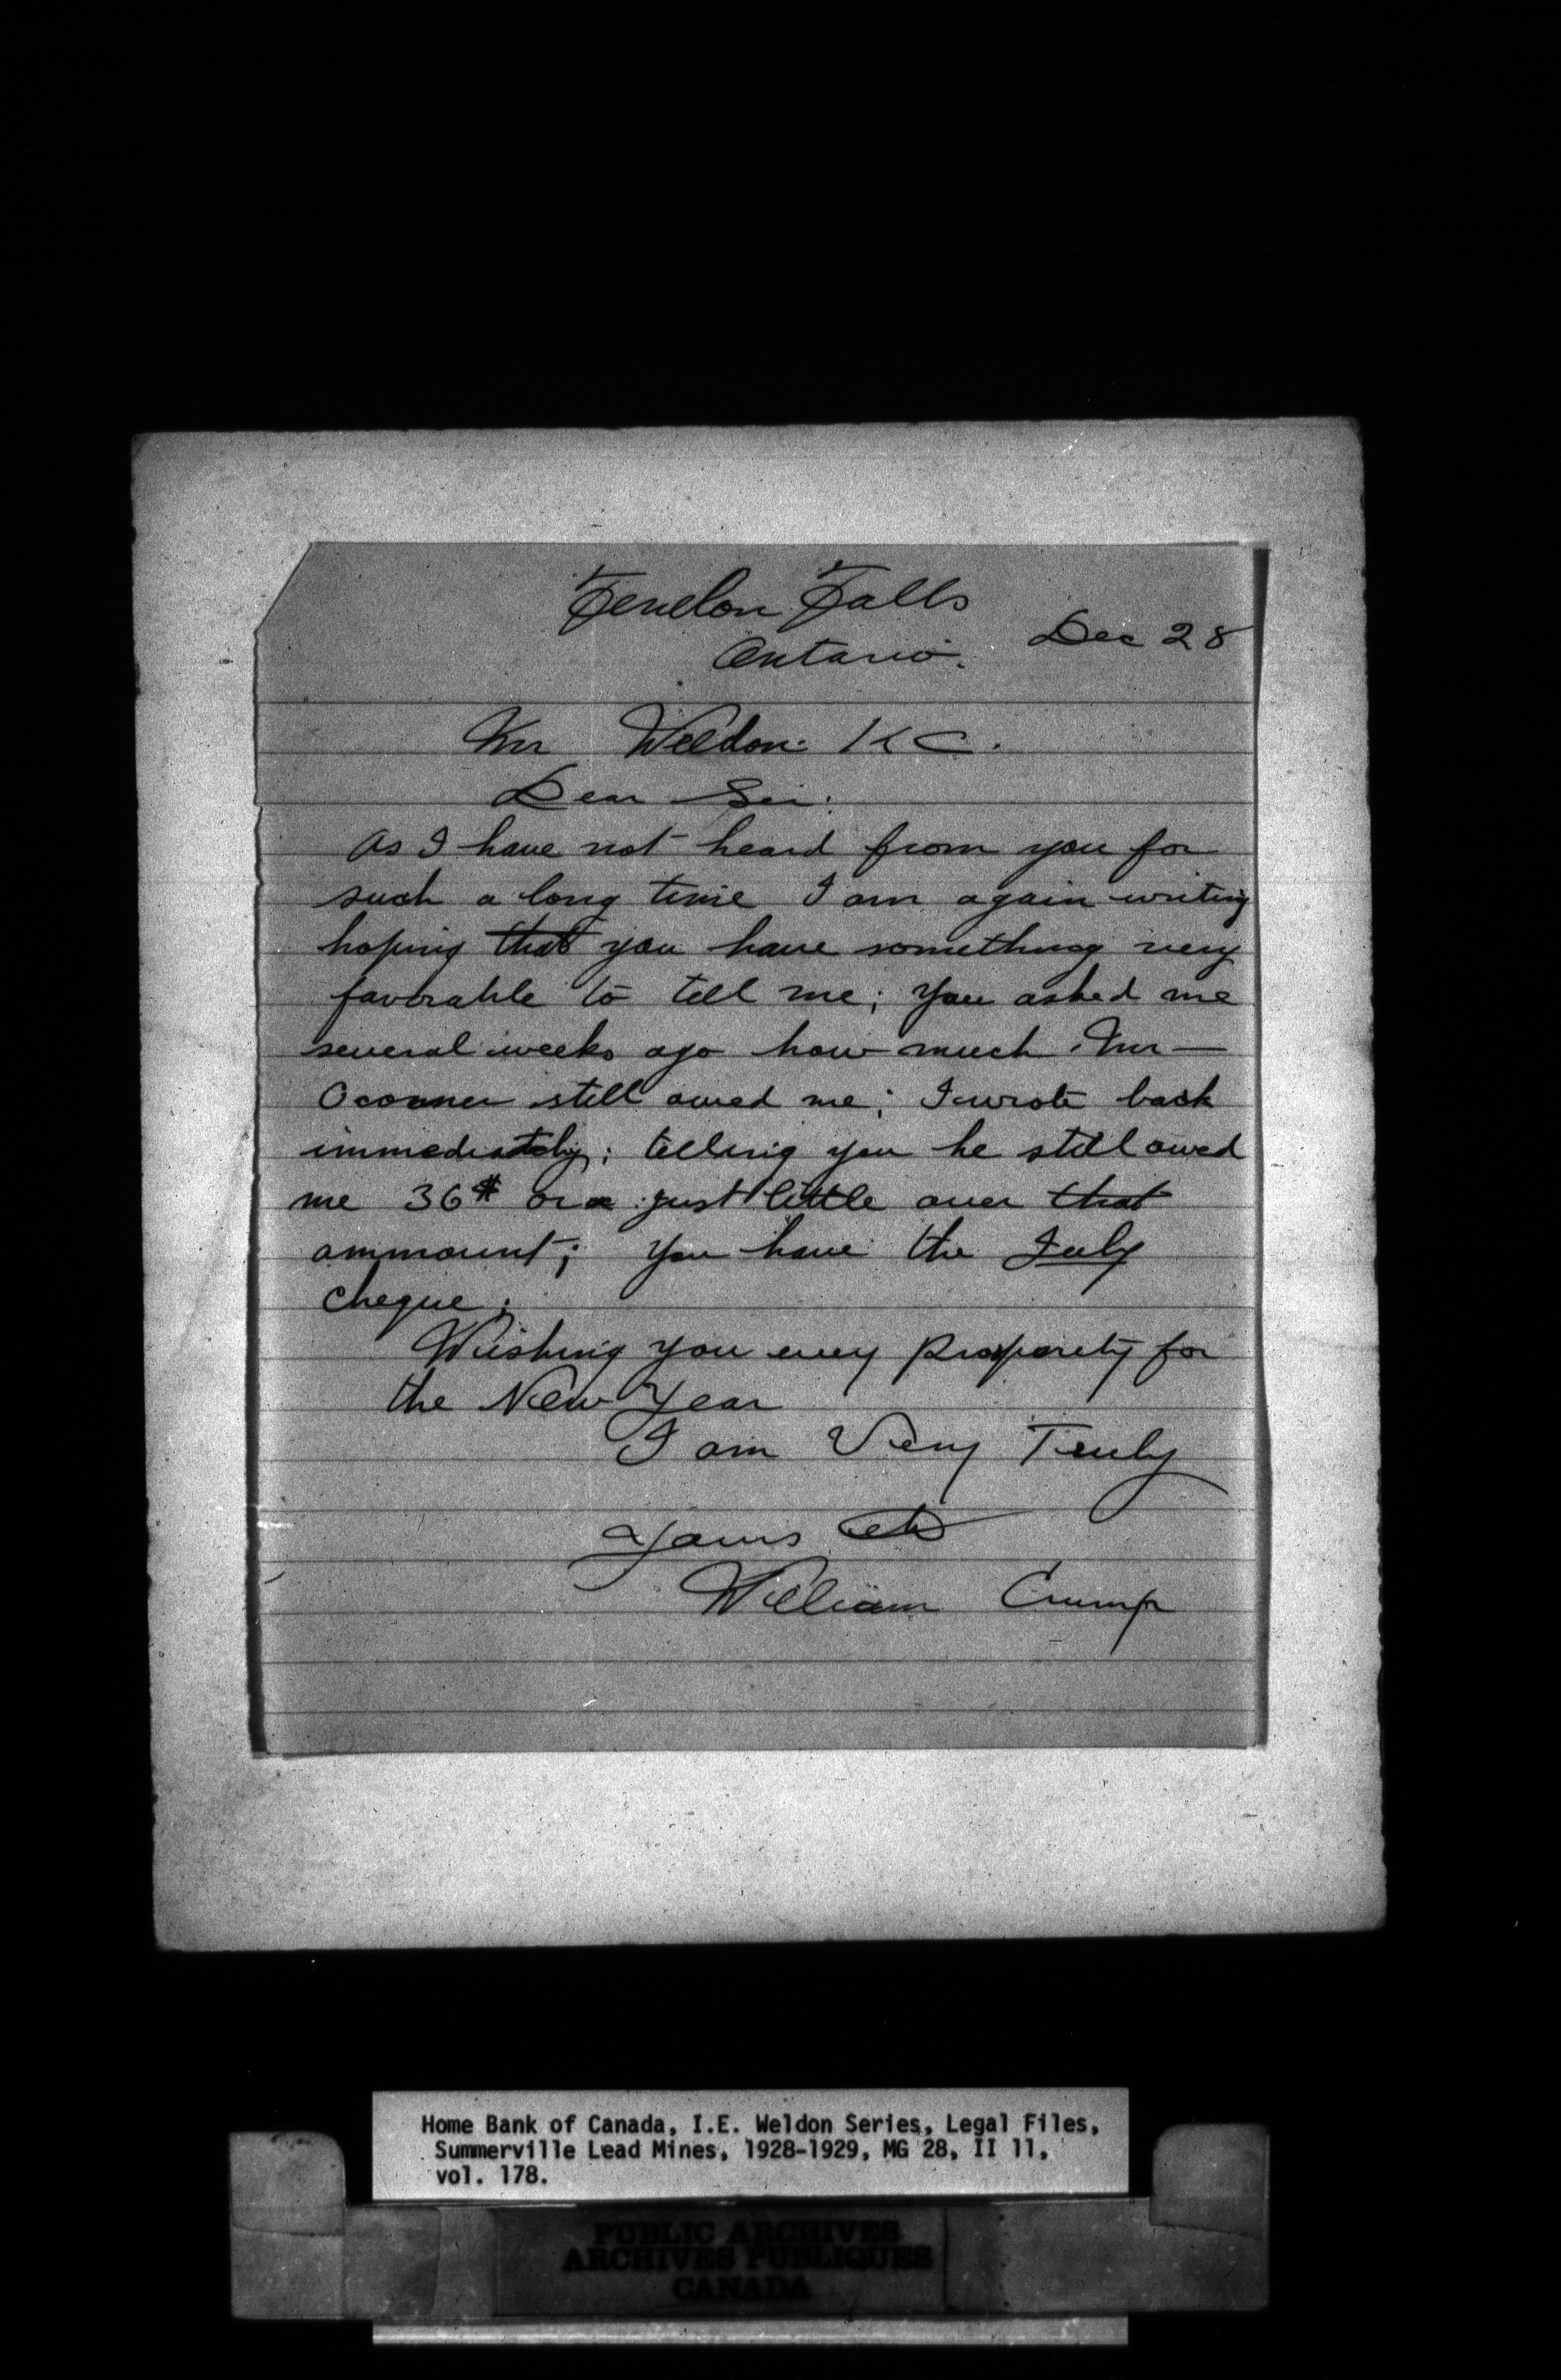 Fenelon Falls
Ontario. Dec 28
Mr Weldon. K C.
Dear Sir:
As I have not heard from you for
such a long time I am again writing
hoping that you have something very
favorable to tell me; you asked me
several weeks ago how much Mr —
Oconner still owed me; I wrote back
immediately; telling you he still owed
me 36$ or a just little over that
ammount; you have the July
cheque;
Wishing you every prosperity for
the New Year
I am Very Truly
Yours
William Crump
Home Bank of Canada, I.E. Weldon Series, Legal Files,
Summerville Lead Mines, 1928-1929, MG 28, II 11,
vol. 178.
PUBLIC ARCHIVES
ARCHIVES PUBLIQUES
CANADA